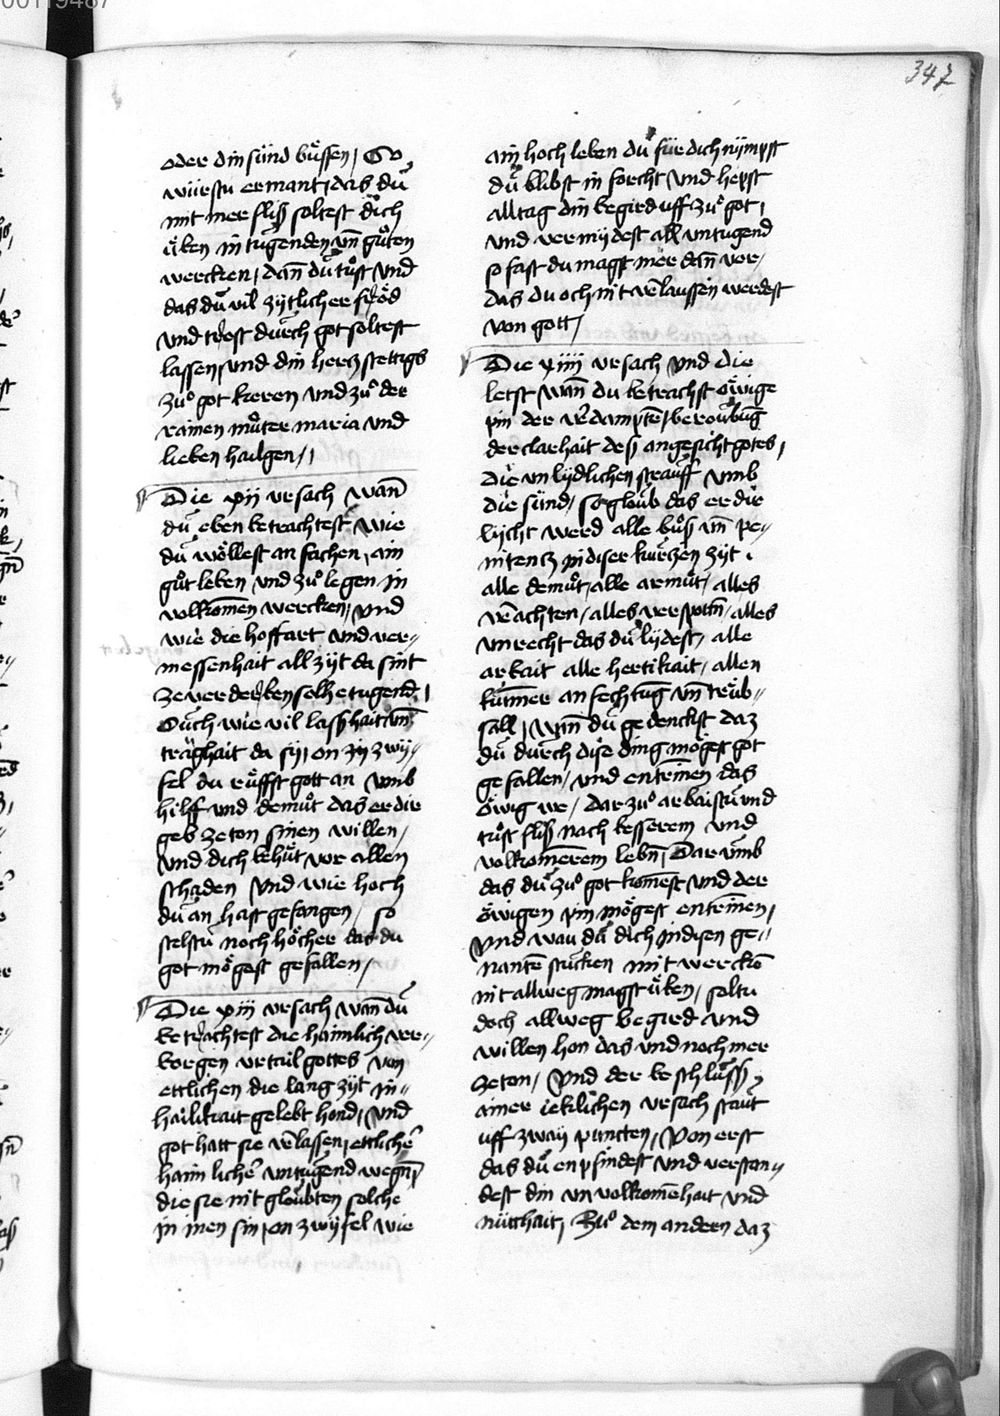 347
oder din sünd buͤssen / So
wirstu ermant / das du
mit mer fliß soltest dich
uͤben in tugenden vn̄ guͦten
wercken / dan̄ du tuͦst vnd
das du vil zytlicher froͤd
vnd trost durch got soltest
lassen / vnd din hercz stettigs
zuͦ got keren vnd zuͦ der
rainen muͦter maria vnd
lieben hailgen /
Die xij vrsach wan̄
du eben betrachtest wie
du woͤllest an fachen / ain
guͦt leben vnd zuͦ legen in
volkomen̄ wercken / vnd
wie die hoffart vnd ver-
messenhait allzyt da sint
ze verderbken selhe tugend /
Ouch wie vil lasshait vn̄
traͤghait da sy / on zy zwy-
fel du ruͤffst gott an vmb
hilff vnd demuͦt das er dir
geb ze ton sinen willen /
vnd dich behuͤt vor allen
schaden vnd wie hoch
du an hast gefangen / so
stelstu noch hoͤcher das du
got moͤgest gefallen /
Die xiij vrsach wan̄ du
betrachtest die haimlich ver-
borgen vrtail gottes von
ettlichen die lang zyt in
hailikait gelebt hond / vnd
got hatt sie v̄lassen / ettlicher
haimlicher vntugend wegn̄
die sie nit gloubten solche
in inen sin / on zwyfel wie
ain hoch leben du für dich nijmpst
du blibst in forcht vnd hepst
alltag din begird uff zuͦ got /
vnd vermijdest all vntugend
so fast du magst mer dan̄ vor /
das du och nit v̄laussen werdest
von gott /
Die xiiij vrsach vnd die
letst wan̄ du betrachst eͤwige
pin der v̄dampten̄ / beroubung
der clarhait des angesicht gotes /
die vnlydlichen strauff vmb
die sünd / so gloub das er die
lijcht werd alle buͦß vn̄ pe-
nitencz in diser kurczen zyt
alle demuͦt / alle armuͦt / alles
v̄achten / alles verspottn̄ / alles
vnrecht das du lydest / alle
arbait alle hertikait / allen
kum̄er anfechtūg vn̄ truͤb-
sall / wan̄ du gedenckst daz
du durch dise ding moͤgest got
gefallen / vnd entrin̄en das
eͤwig we / dar zuͦ arbaistu vnd
tuͦst fliß nach besserem vnd
volkomerem lebn̄ / Dar vmb
das du zuͦ got komest vnd der
eͤwigen pin moͤgest entrin̄en /
Vnd wan du dich in disen ge-
nanten stucken mit wercken
nit allweg magst uͤben / soltu
doch allweg begird vnd
willen hon das vnd noch mer
ze ton / Vnd der beschluss
ainer ieklichen vrsach staut
uff zway puncten / Von erst
das du enpfindest vnd verstan-
dest din vnvolkomehait vnd
nütthait / Zuͦ dem andern daz